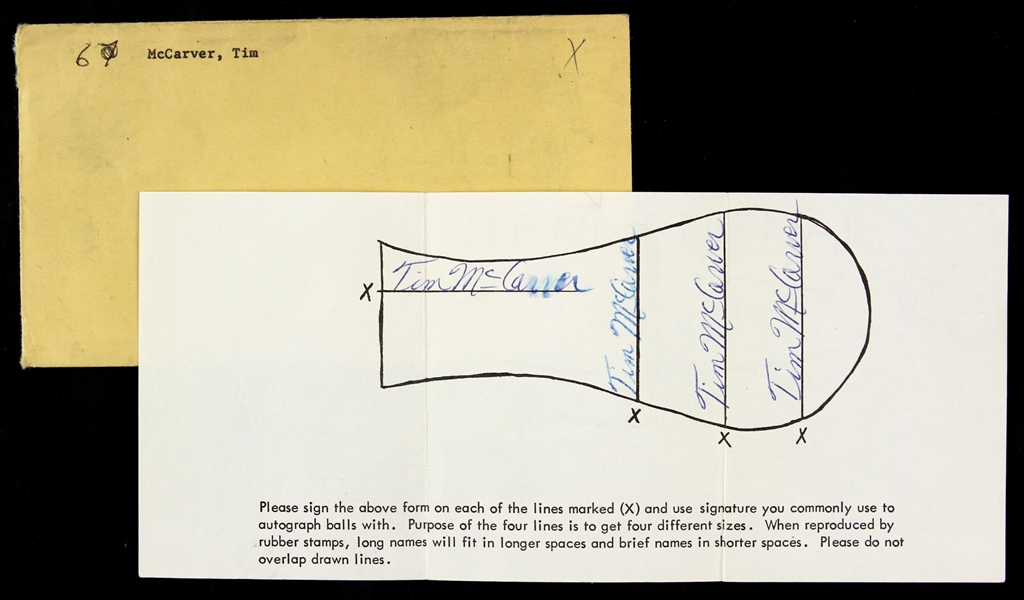 67 McCarver, Tim X
X Tim McCarver
Tim McCarver
X
Tim McCarver
X
Tim McCarver
X
Please sign the above form on each of the lines marked (X) and use signature you commonly use to
autograph balls with. Purpose of the four lines is to get four different sizes. When reproduced by
rubber stamps, long names will fit in longer spaces and brief names in shorter spaces. Please do not
overlap drawn lines.